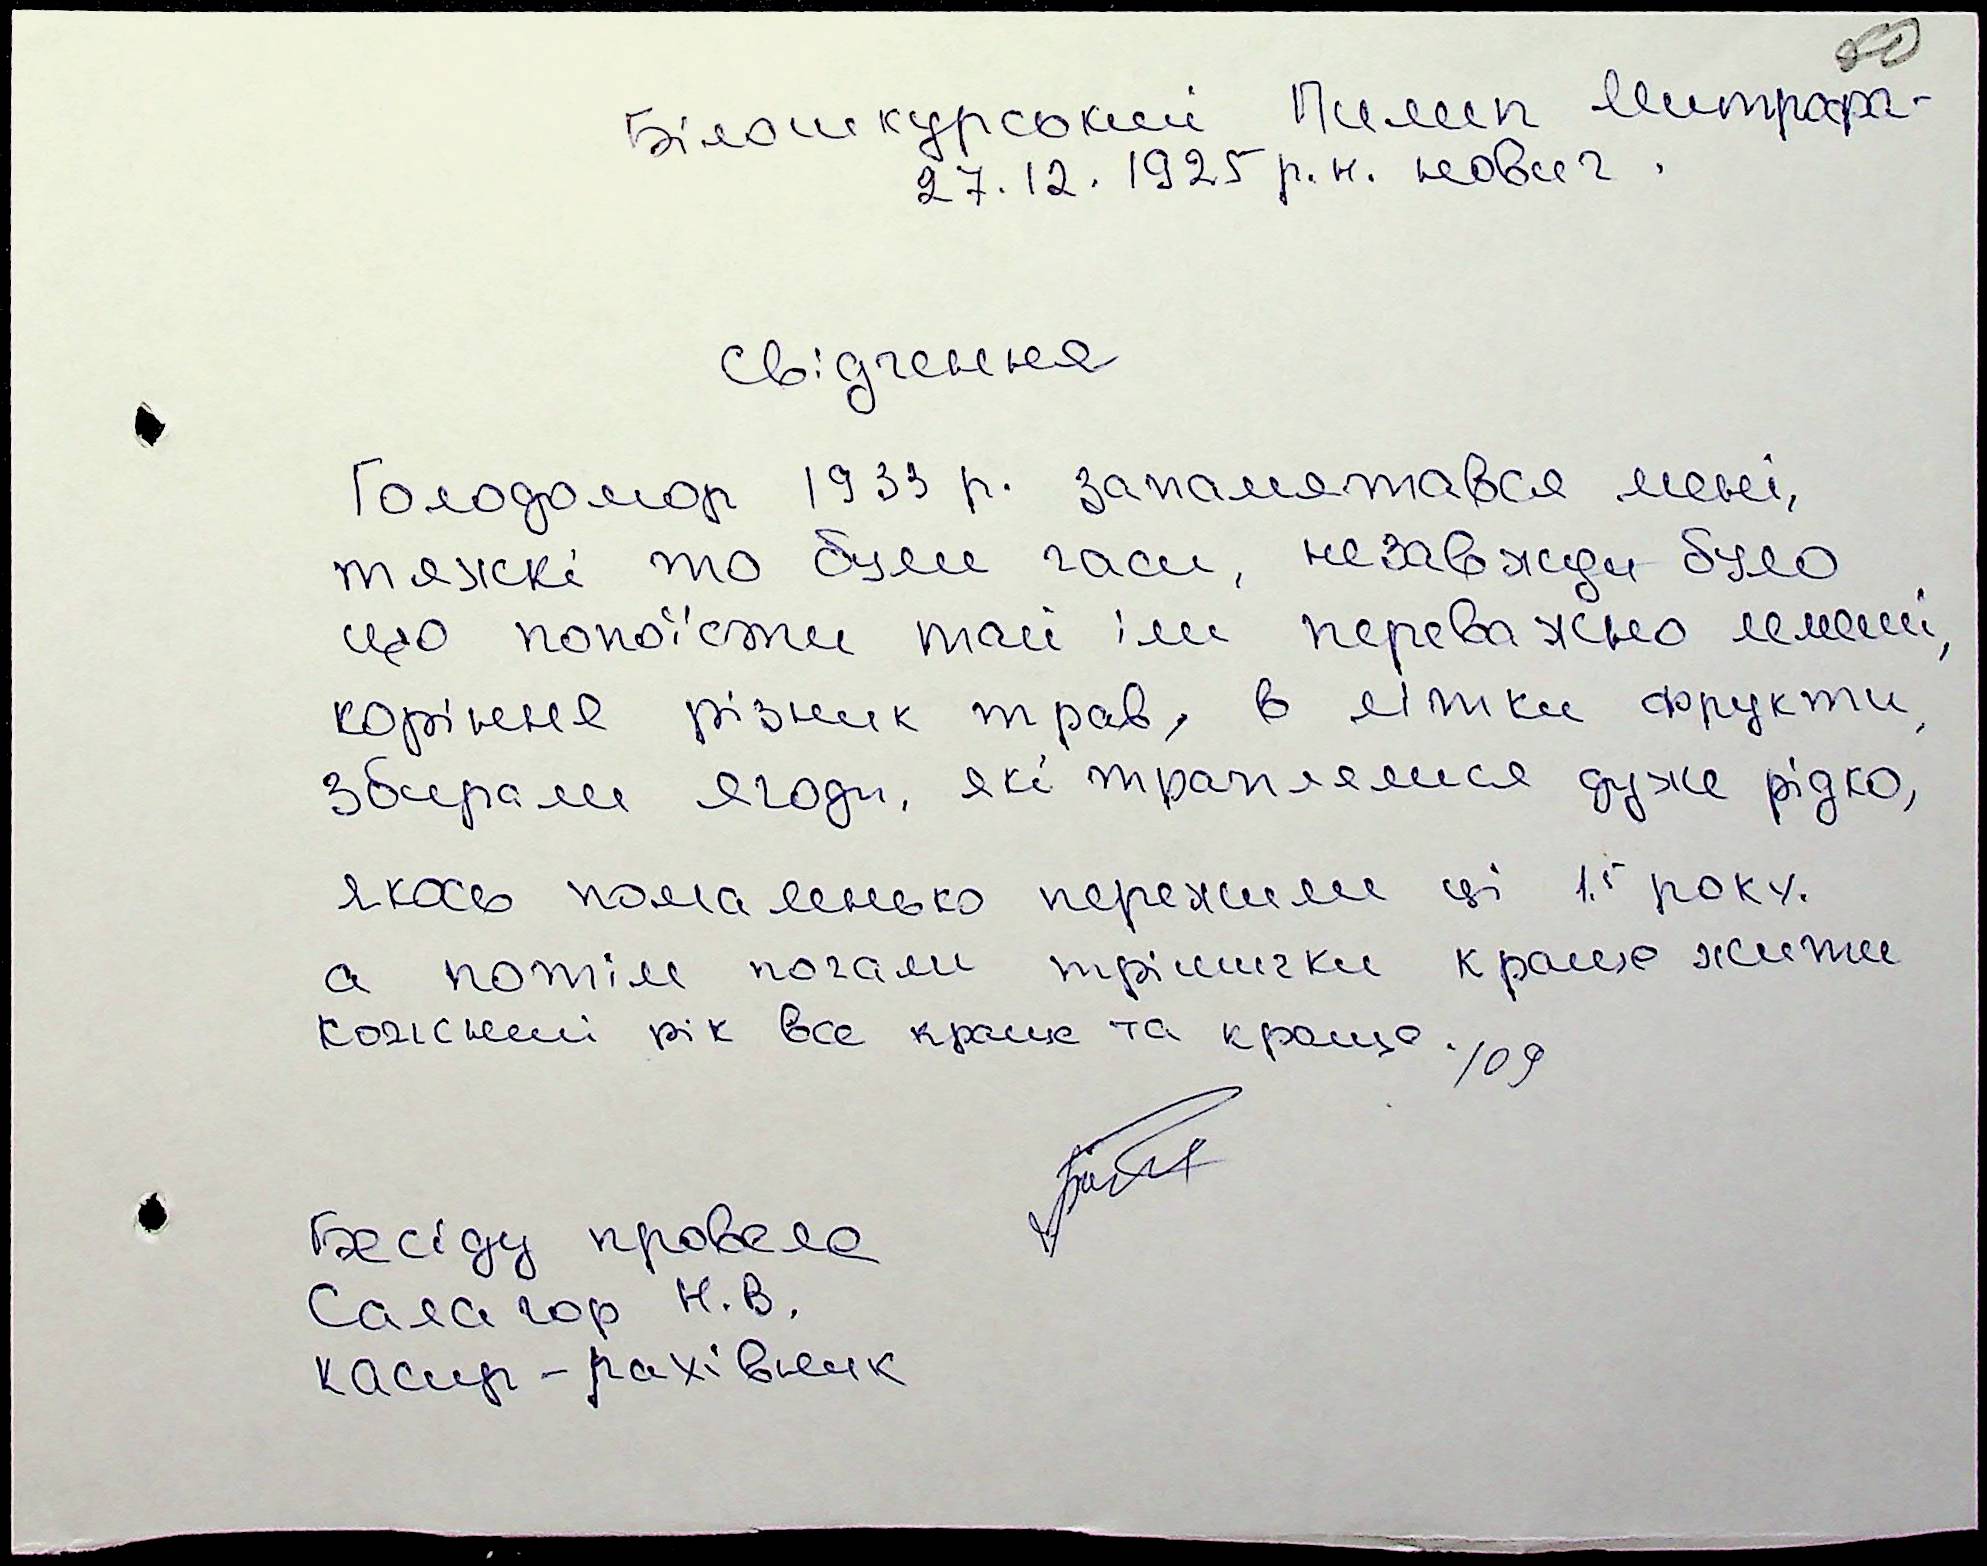 80
Білошкурський Пилип Митрофа-
27.12.1925 р.н. нович.
Свідчення
Голодомор 1933 р. запамятався мені,
тяжкі то були часи, незавжди було
що попоїсти тай їли переважно
коріння різних трав, в літку фрукти,
збирали ягоди, які траплялися дуже рідко,
якось помаленько пережили ці 1.5 року.
а потім почали трішички краще жити
кожний рік все краще та краще. /09
Бесіду провела
Салагор Н.В.
касир-рахівник